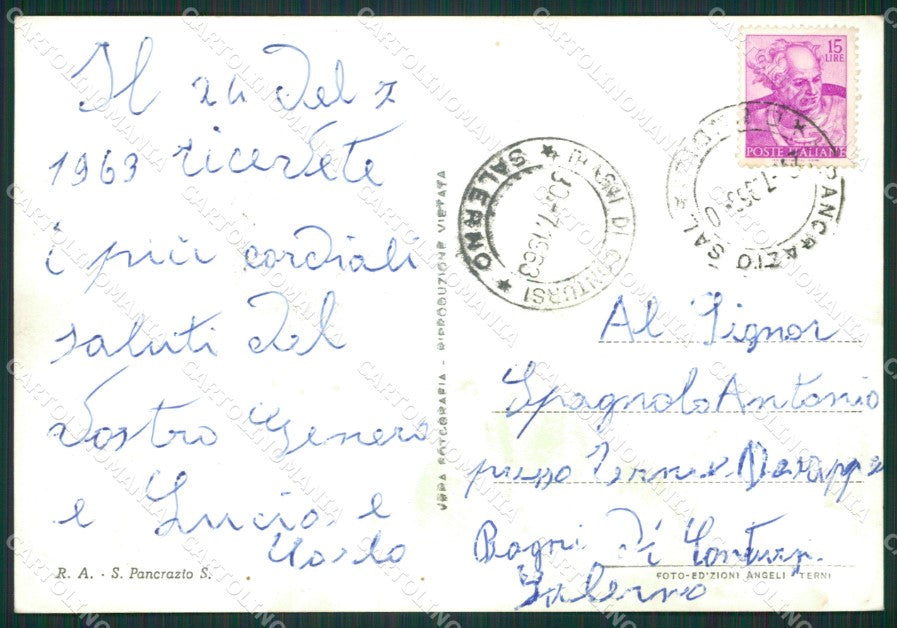 Il 24 del 7
1963 ricevete
i più cordiali
saluti dal
Vostro Genero
e Lucia e
R. A. - S. Pancrazio S.
VERA FOTOGRAFIA - RIPRODUZIONE VIETATA
15
LIRE
POSTE ITALIANE
S. PANCRAZIO SAL.
BAGNI DI CONTURSI
30.-7.1963
* SALERNO *
Al Signor
Spagnolo Antonio
presso
Bagni di Contursi
Salerno
FOTO-EDIZIONI ANGELI TERNI
CARTOLINOMANIA